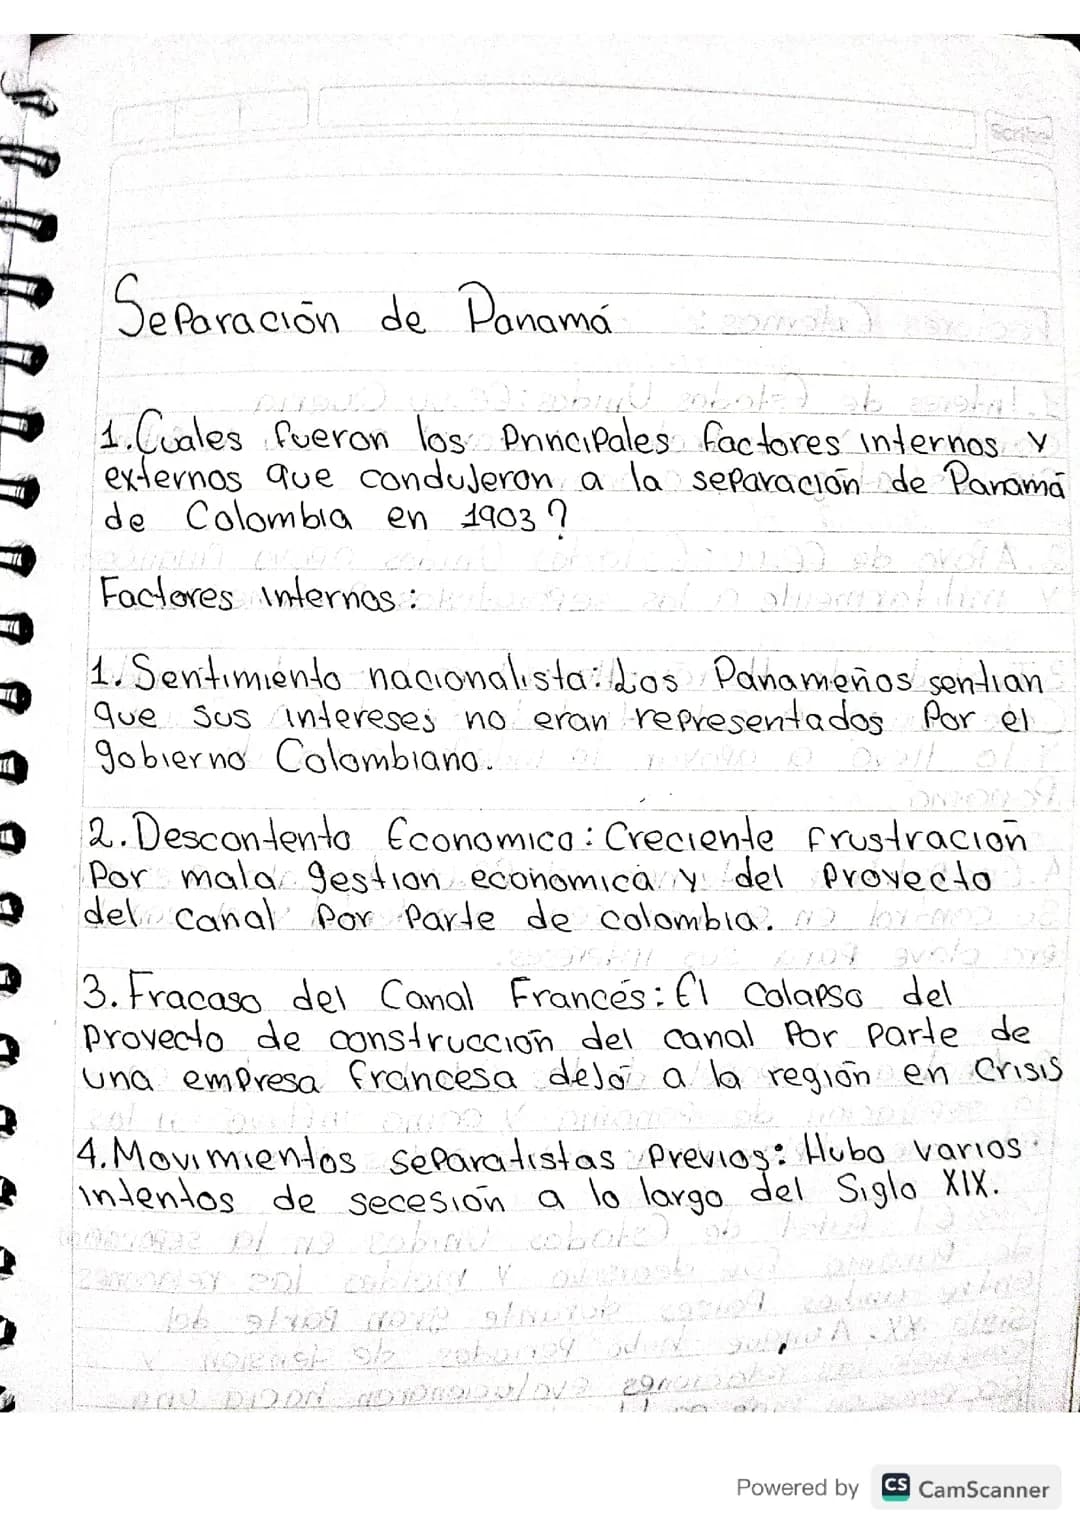 Scribe
Separación de Panamá
1. Cuales fueron los Principales factores internos y
externos que condujeron a la separación de Panamá
de Colombia en 1903?
Factores internos:
1. Sentimiento nacionalista: Los Panameños sentian
que sus intereses no eran representados Por el
gobierno Colombiano.
2. Descontento Economico: Creciente frustración
Por mala gestion economica y del Proyecto
del canal Por Parte de colombia.
3. Fracaso del Canal Francés: El Colapso del
Proyecto de construcción del canal Por Parte de
una empresa francesa dejó a la región en Crisis
4. Movimientos separatistas Previos: Hubo varios
intentos de secesión a lo largo del Siglo XIX.
Powered by CS CamScanner